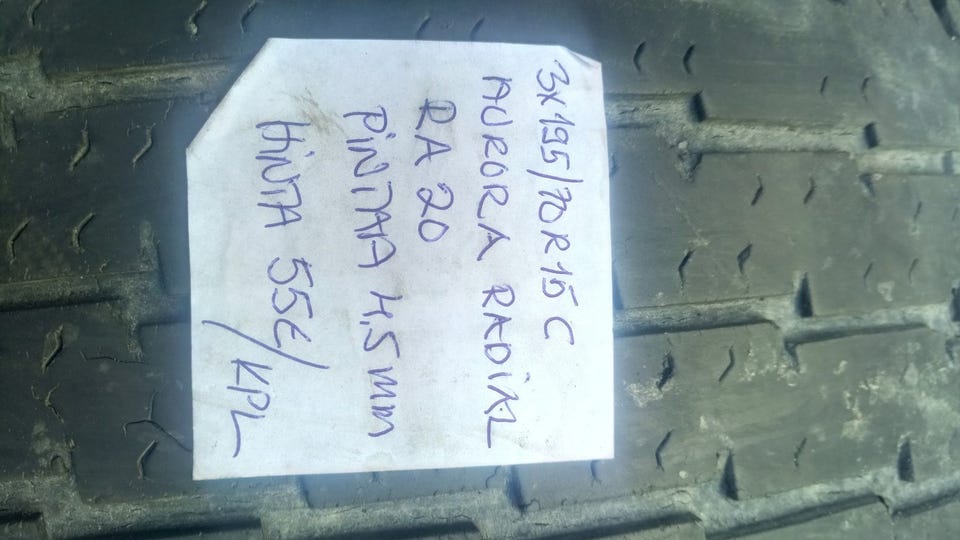 3x195/70R15 C
AURORA RADIAL
RA 20
PINTAA 4,5 mm
HINTA 55€/KPL